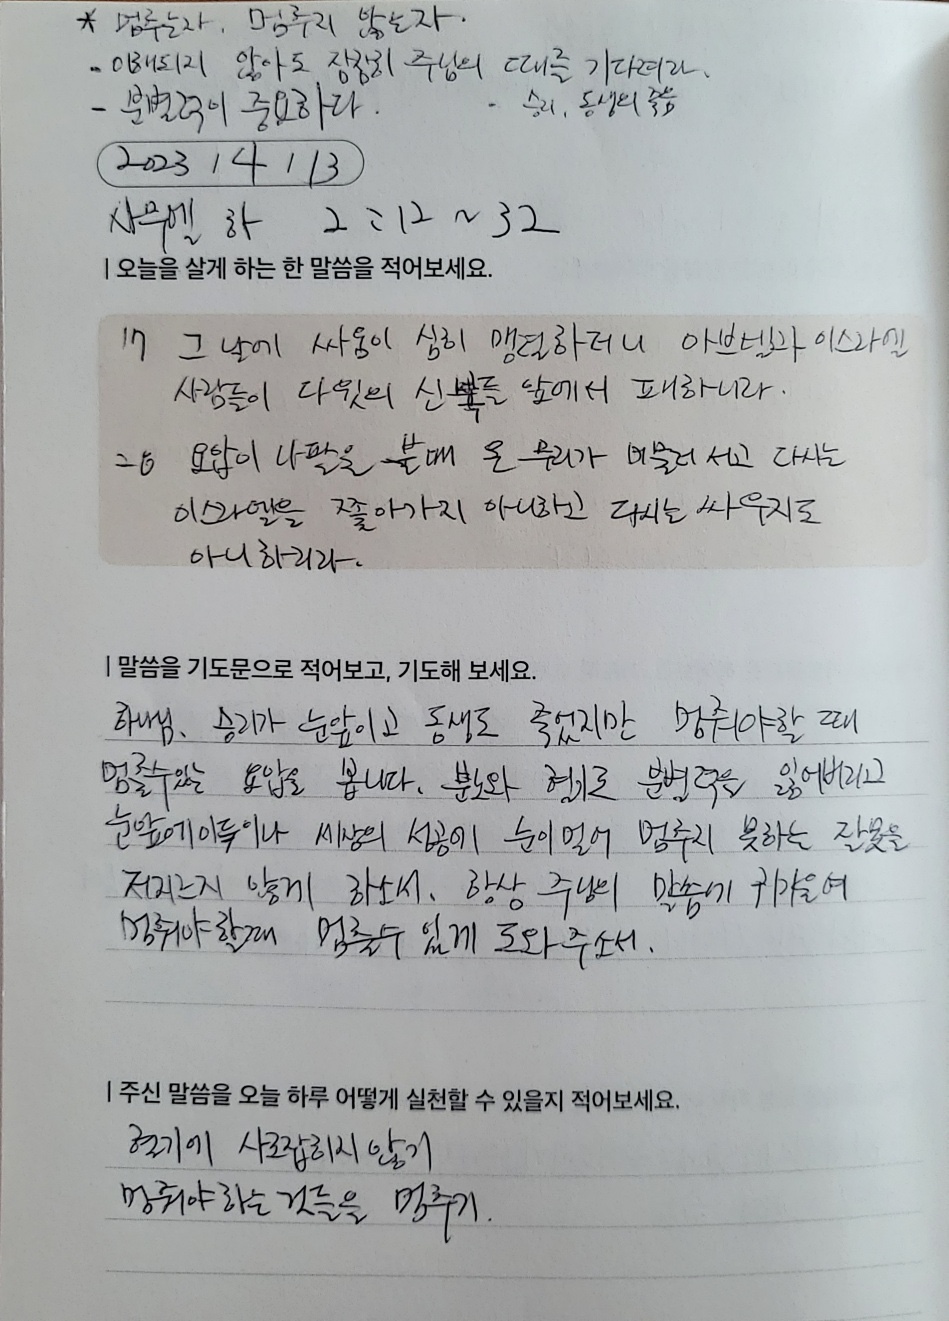 * 멈추는자, 멈추지 않는자.
- 이해되지 않아도 잠잠히 주님의 때를 기다려라.
- 분별력이 중요하다. - 승리, 동생의 죽음
2023 / 4 / 13
사무엘 하 2:12 ~ 32
| 오늘을 살게 하는 한 말씀을 적어보세요.
17 그 날에 싸움이 심히 맹렬하더니 아브넬과 이스라엘
사람들이 다윗의 신복들 앞에서 패하니라.
28 요압이 나팔을 불매 온 무리가 머물러 서고 다시는
이스라엘을 쫓아가지 아니하고 다시는 싸우지도
아니하리라.
| 말씀을 기도문으로 적어보고, 기도해 보세요.
하나님, 승리가 눈앞이고 동생도 죽었지만 멈춰야할 때
멈출수있는 요압을 봅니다. 분노와 혈기로 분별력을 잃어버리고
눈앞에이득이나 세상의 성공에 눈이멀어 멈추지 못하는 잘못을
저지르지 않게 하소서. 항상 주님의 말씀에 귀기울여
멈춰야 할때 멈출수 있게 도와주소서.
| 주신 말씀을 오늘 하루 어떻게 실천할 수 있을지 적어보세요.
혈기에 사로잡히지 않기
멈춰야 하는 것들을 멈추기.